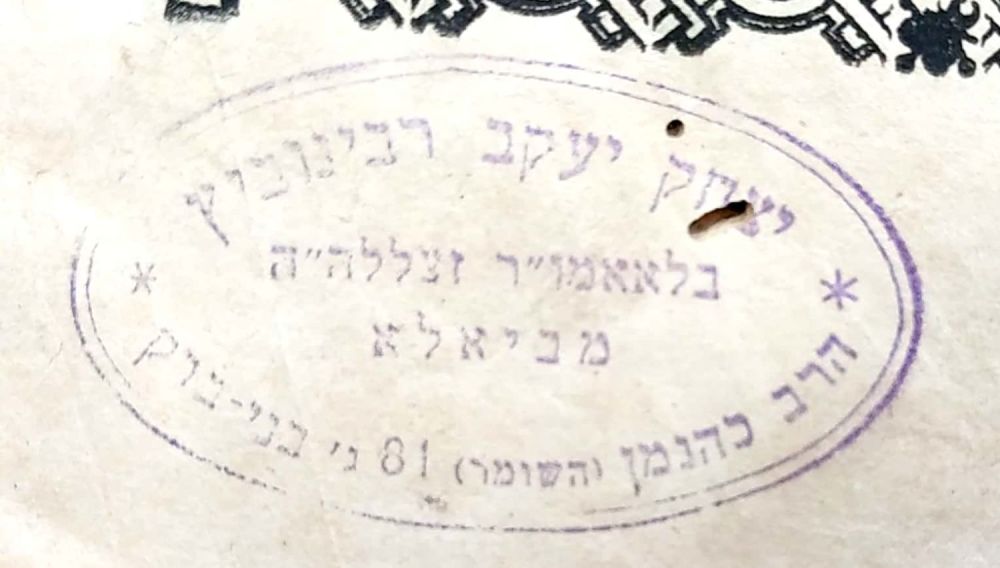 יצחק יעקב רבינוביץ
בלאאמו״ר זצללה״ה
מביאלא
הרב כהנמן (השומר) 81 ג׳ בני-ברק